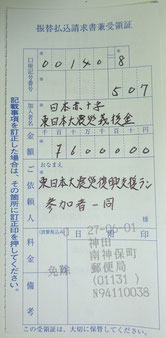 振替払込請求書兼受領証
口座記号番号
00140-8
507
加入者名
日本赤十字
東日本大震災義援金
金額
千百十万千百十円
7600000
ご依頼人
おなまえ
東日本大震災復興支援ラン
参加者一同
様
料金
(消費税込み)
免除
備考
日附印
27-04-01
神田
南神保町
郵便局
(01131)
N94110038
記載事項を訂正した場合は、その箇所に訂正印を押してください。
この受領証は、大切に保管してください。